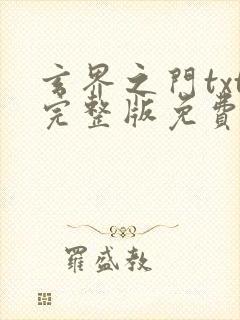 玄界之門txt
完整版免費
羅盛教